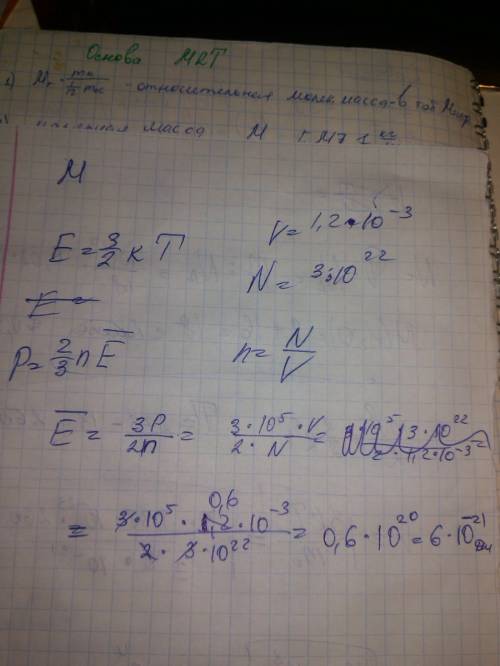 Основа МКТ
1) Mr = m₀ / 1/12 mc - относительная молек. масса - в таб. Менд
масса M [M] = 1 кг/
M
E = 3/2 k T
V = 1,2 · 10⁻³
N = 3 · 10²²
E =
p = 2/3 n E̅
n = N/V
E̅ = 3P/2n = 3 · 10⁵ · V / 2 · N =
= 3 · 10⁵ · 1,2 · 10⁻³ / 2 · 3 · 10²² = 0,6 · 10²⁰ = 6 · 10⁻²¹ Дж
0,6